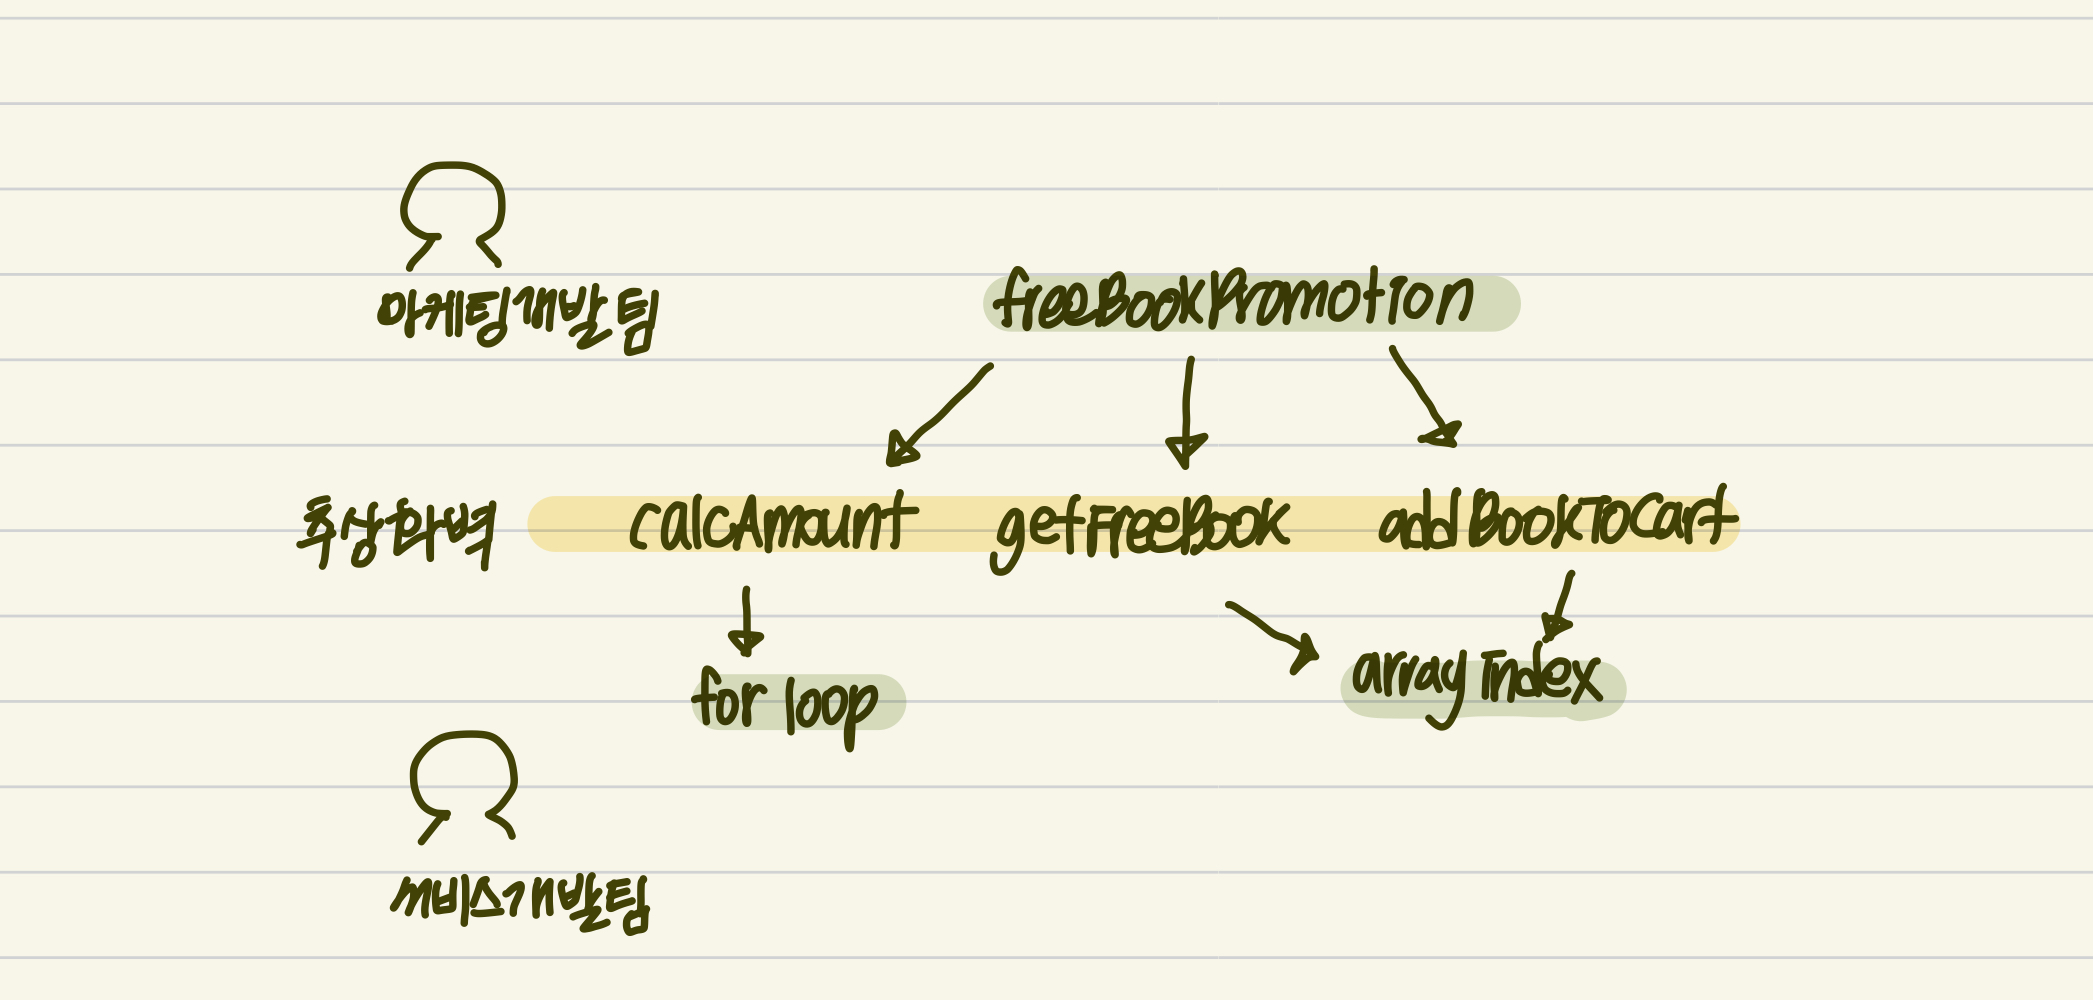 마케팅개발팀
freeBookPromotion
추상화벽 calcAmount getFreeBook addBookToCart
for loop
array Index
서비스개발팀